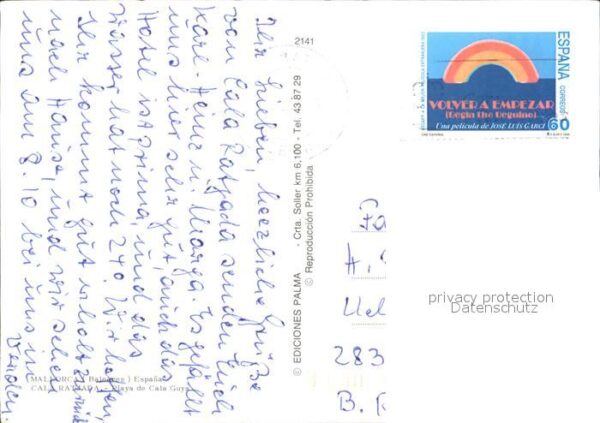 Ihr Lieben, herzliche Grüße
von Cala Ratjada senden Euch
Karl-Heinz u. Marga. Es gefällt
uns hier sehr gut, auch das
Hotel ist prima, und das
Wasser hat noch 24°. Wir hoffen,
Ihr kommt gut u. heil zurück
nach Haus, und wir sehen
uns am 8.10 bei uns in
Verden.
MALLORCA (Baleares) España
CALA RATJADA - Playa de Cala Guya
2141
© EDICIONES PALMA - Crta. Soller km 6,100 - Tel. 43 87 29
© Reproducción Prohibida
ESPAÑA
CORREOS
60
VOLVER A EMPEZAR
(Begin The Beguine)
Una película de JOSE LUIS GARCI
283
B.
privacy protection
Datenschutz